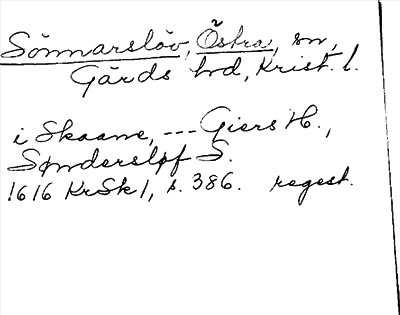 Sönnarslöv, Östra, sn,
Gärds hd, Krist. l.
i Skaane, --- Giers H.,
Søndersløf S.
1616 KrSk 1, s. 386. regest.